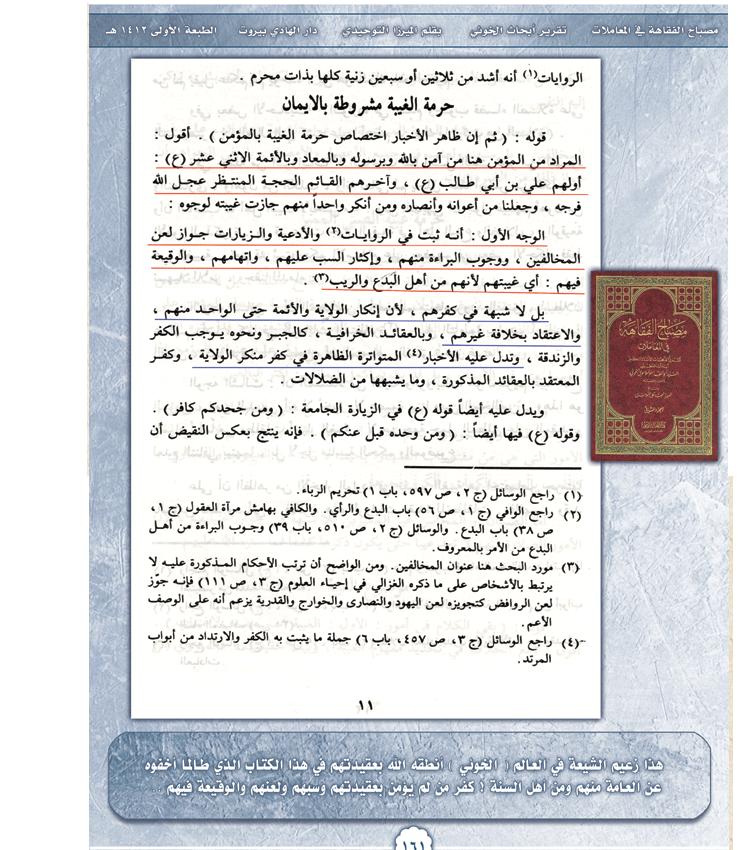 مصباح الفقاهة في المعاملات تقرير أبحاث الخوئي بقلم الميرزا التوحيدي دار الهادي بيروت الطبعة الأولى ١٤١٢ هـ
الروايات(١) أنه أشد من ثلاثين أو سبعين زنية كلها بذات محرم .
حرمة الغيبة مشروطة بالايمان
قوله : ( ثم إن ظاهر الأخبار اختصاص حرمة الغيبة بالمؤمن ) . أقول :
المراد من المؤمن هنا من آمن بالله وبرسوله وبالمعاد وبالأئمة الاثني عشر (ع) :
أولهم علي بن أبي طالب (ع) ، وآخرهم القائم الحجة المنتظر عجل الله
فرجه ، وجعلنا من أعوانه وأنصاره ومن أنكر واحداً منهم جازت غيبته لوجوه :
الوجه الأول : أنه ثبت في الروايات(٢) والأدعية والزيارات جواز لعن
المخالفين ، ووجوب البراءة منهم ، وإكثار السب عليهم ، واتهامهم ، والوقيعة
فيهم : أي غيبتهم لأنهم من أهل البدع والريب(٣) .
بل لا شبهة في كفرهم ، لأن إنكار الولاية والأئمة حتى الواحد منهم ،
والاعتقاد بخلافة غيرهم ، وبالعقائد الخرافية ، كالجبر ونحوه يوجب الكفر
والزندقة ، وتدل عليه الأخبار(٤) المتواترة الظاهرة في كفر منكر الولاية ، وكفر
المعتقد بالعقائد المذكورة ، وما يشبهها من الضلالات .
ويدل عليه أيضاً قوله (ع) في الزيارة الجامعة : ( ومن جحدكم كافر ) .
وقوله (ع) فيها أيضاً : ( ومن وحده قبل عنكم ) . فإنه ينتج بعكس النقيض أن
(١) راجع الوسائل (ج ٢ ، ص ٥٩٧، باب ١) تحريم الرباء.
(٢) راجع الوافي (ج ١ ، ص ٥٦) باب البدع والرأي. والكافي بهامش مرآة العقول (ج ١ ،
ص ٣٨) باب البدع. والوسائل (ج ٢ ، ص ٥١٠، باب ٣٩) وجوب البراءة من أهل
البدع من الأمر بالمعروف.
(٣) مورد البحث هنا عنوان المخالفين. ومن الواضح أن ترتب الأحكام المذكورة عليه لا
يرتبط بالأشخاص على ما ذكره الغزالي في إحياء العلوم (ج ٣ ، ص ١١١) فإنه جوّز
لعن الروافض كتجويزه لعن اليهود والنصارى والخوارج والقدرية بزعم أنه على الوصف
الأعم .
(٤) راجع الوسائل (ج ٣ ، ص ٤٥٧، باب ٦) جملة ما يثبت به الكفر والارتداد من أبواب
المرتد.
١١
مصباح الفقاهة
في المعاملات
هذا زعيم الشيعة في العالم ( الخوئي ) أنطقه الله بعقيدتهم في هذا الكتاب الذي طالما أخفوه
عن العامة منهم ومن أهل السنة ! كفر من لم يؤمن بعقيدتهم وسبهم ولعنهم والوقيعة فيهم ..
١٦١